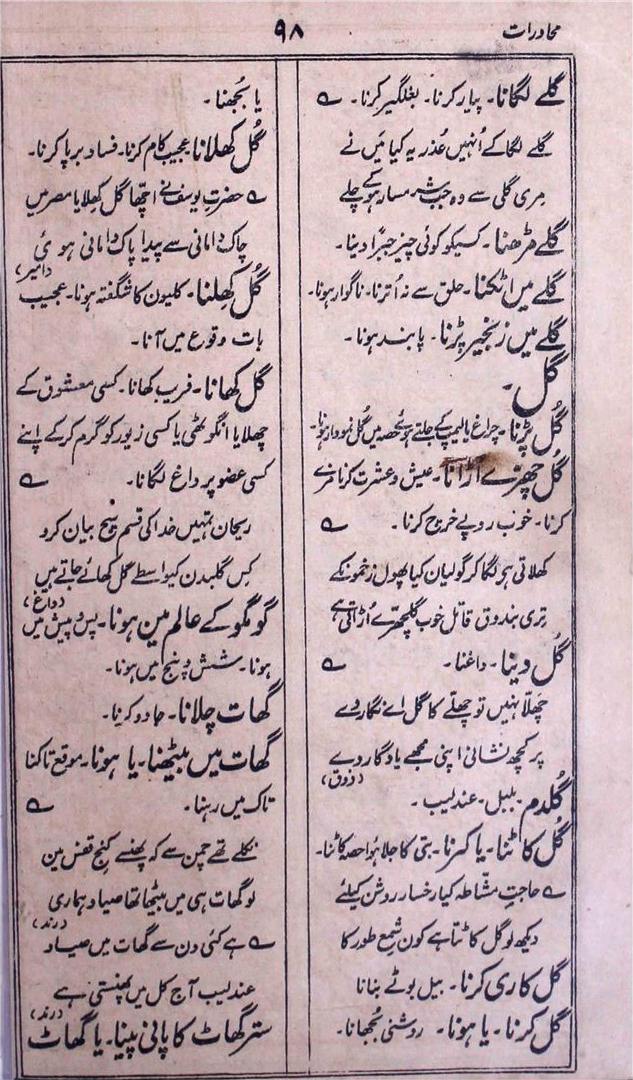 محاورات
۹۸
گلے لگانا۔ پیار کرنا۔ بغلگیر کرنا۔ ؎
گلے لگا کے اُنہیں عُذر یہ کیا میں نے
مِری گلی سے وہ جب شرمسار ہو کے چلے
گلے مڑھنا۔ کسیکو کوئی چیز جبراً دینا۔
گلے میں اٹکنا۔ حلق سے نہ اُترنا۔ ناگوار ہونا۔
گلے میں زنجیر پڑنا۔ پابند ہونا۔
گل۔
گُل پڑنا۔ چراغ یا لیمپ کے جلتے ہوئے حصہ میں گُل نمودار ہونا۔
گُل چھرّے اُڑانا۔ عیش و عشرت کرنا مزے
کرنا۔ خوب روپے خرچ کرنا۔ ؎
کھلاتی ہی لگا کر گولیان کیا پھول زخمونکے
تری بندوق قاتل خوب گلچھرّے اُڑاتی ہے
گُل دینا۔ داغنا۔ ؎
چھلّا نہیں تو چھلّے کا گل اے نگار دے
پر کچھ نشانی اپنی مجھے یادگار دے
(ذوق)
گلدم۔ بلبل۔ عندلیب۔
گُل کاٹنا۔ یا کترنا۔ بتی کا جلا ہوا حصہ کاٹنا۔
؎ حاجتِ مشّاطہ کیا رخسار روشن کیلئے
دیکھ لو گل کاٹتا ہے کون شمع طور کا
گل کاری کرنا۔ بیل بوٹے بنانا
گل کرنا۔ یا ہونا۔ روشنی بُجھانا۔
یا بُجھنا۔
گُل کھلانا۔ عجیب کام کرنا۔ فساد برپا کرنا۔
؎ حضرتِ یوسف نے اچّھا گل کھلایا مصر میں
چاک دامانی سے پیدا پاک دامانی ہوئی
(امیر)
گُل کھلنا۔ کلیون کا شگفتہ ہونا۔ عجیب
بات وقوع میں آنا۔
گل کھانا۔ فریب کھانا۔ کسی معشوق کے
چھلا یا انگوٹھی یا کسی زیور کو گرم کر کے اپنے
کسی عضو پر داغ لگانا۔ ؎
ریحان تمہیں خدا کی قسم سچ بیان کرو
کِس گلبدن کیواسطے گل کھائے جاتے ہیں
(داغ)
گومگو کے عالم مین ہونا۔ پس و پیش میں
ہونا۔ شش و پنج میں ہونا۔
گھات چلانا۔ جادو کرنا۔
گھات میں بیٹھنا۔ یا ہونا۔ موقع تاکنا
تاک میں رہنا۔ ؎
نکلے تھے چمن سے کہ پھنسے کنج قفس مین
لو گھات ہی میں بیٹھا تھا صیاد ہماری
(رند)
؎ ہے کئی دن سے گھات میں صیاد
عندلیب آج کل میں پھنستی ہے
(رند)
ستر گھاٹ کا پانی پینا۔ یا گھاٹ